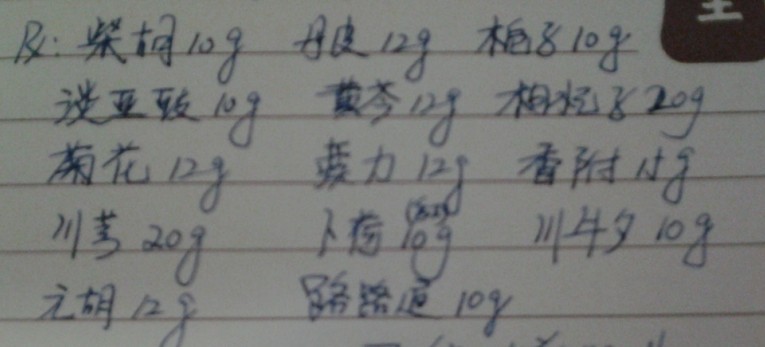 Rx: 柴胡10g 丹皮12g 栀子10g
淡豆豉10g 黄芩12g 枸杞子20g
菊花12g 蒺力12g 香附15g
川芎20g 卜荷(后下)10g 川牛夕10g
元胡12g 路路通10g